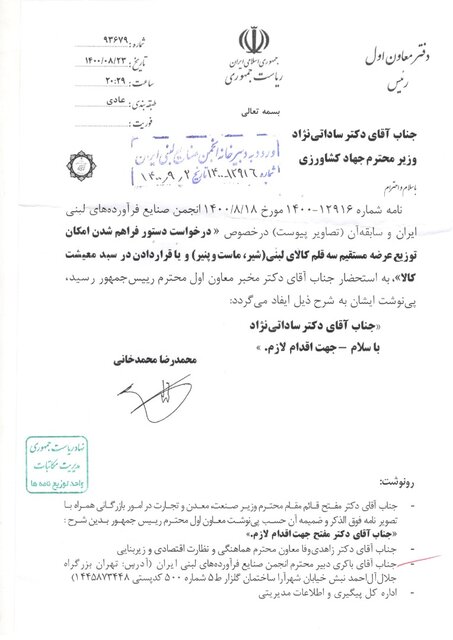 جمهوری اسلامی ایران
ریاست جمهوری
دفتر معاون اول
رئیس
شماره: ۹۳۶۷۹
تاریخ: ۱۴۰۰/۰۸/۲۳
ساعت: ۲۰:۲۹
طبقه بندی: عادی
فوریت:
بسمه تعالی
جناب آقای دکتر ساداتی‌نژاد
وزیر محترم جهاد کشاورزی
ورود به دبیرخانه انجمن صنایع لبنی ایران
شماره ۱۲۹۱۶-۱۴۰۰ تاریخ
با سلام و احترام
نامه شماره ۱۲۹۱۶-۱۴۰۰ مورخ ۱۴۰۰/۸/۱۸ انجمن صنایع فرآورده‌های لبنی
ایران و سابقه آن (تصاویر پیوست) درخصوص « درخواست دستور فراهم شدن امکان
توزیع عرضه مستقیم سه قلم کالای لبنی(شیر، ماست و پنیر) و یا قراردادن در سبد معیشت
کالا»، به استحضار جناب آقای دکتر مخبر معاون اول محترم رییس‌جمهور رسید،
پی‌نوشت ایشان به شرح ذیل ایفاد می‌گردد:
«جناب آقای دکتر ساداتی‌نژاد
با سلام – جهت اقدام لازم. »
محمدرضا محمدخانی
نهاد ریاست جمهوری
مدیریت مکاتبات
واحد توزیع نامه ها
رونوشت:
- جناب آقای دکتر مفتح قائم مقام محترم وزیر صنعت معدن و تجارت در امور بازرگانی همراه با
تصویر نامه فوق الذکر و ضمیمه آن حسب پی‌نوشت معاون اول محترم رییس جمهور بدین شرح :
«جناب آقای دکتر مفتح جهت اقدام لازم.»
- جناب آقای دکتر زاهدی‌وفا معاون محترم هماهنگی و نظارت اقتصادی و زیربنایی
- جناب آقای باکری دبیر محترم انجمن صنایع فرآورده‌های لبنی ایران (آدرس: تهران بزرگراه
جلال‌آل‌احمد نبش خیابان شهرآرا ساختمان گلزار ط۵ شماره ۵۰۰ کدپستی ۱۴۴۵۸۷۳۴۴۸)
- اداره کل پیگیری و اطلاعات مدیریتی